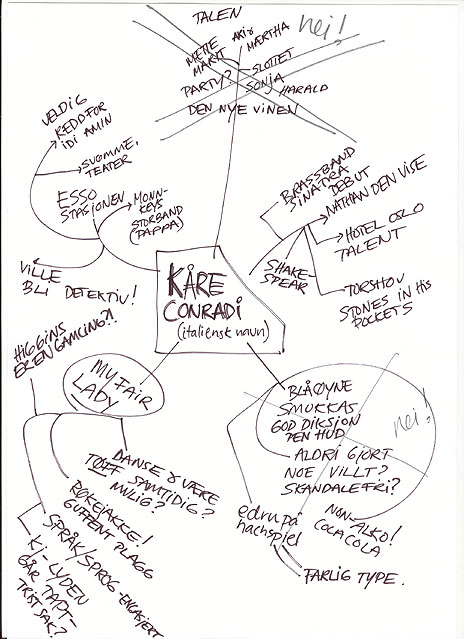 TALEN
nei!
METTE
MARIT
ARI
MÄRTHA
SLOTTET
PARTY?
SONJA
HARALD
DEN NYE VINEN
VELDIG
REDD FOR
IDI AMIN
SVØMME,
TEATER
ESSO
STASJONEN
MONN-
KEYS
STORBAND
(PAPPA)
VILLE
BLI DETEKTIV!
BRASSBAND
SINATRA
DEBUT
NATHAN DEN VISE
HOTEL OSLO
TALENT
SHAKE-
SPEAR
TORSHOV
STONES IN HIS
POCKETS
KÅRE
CONRADI
(italiensk navn)
HIGGINS
ER EN GAMLING?!
MY FAIR
LADY
DANSE & VÆRE
TØFF SAMTIDIG?
MULIG?
RØKEJAKKE!
GUFFENT PLAGG
SPRÅK/SPROG-ENGASJERT
KJ-LYDEN
GÅR TAPT-
TRIST SAK?
BLÅØYNE
SMUKKAS
GOD DIKSJON
PEN HUD
nei!
ALDRI GJORT
NOE VILLT?
SKANDALEFRI?
NON-ALKO!
COCA COLA
edru på
nachspiel
FARLIG TYPE.